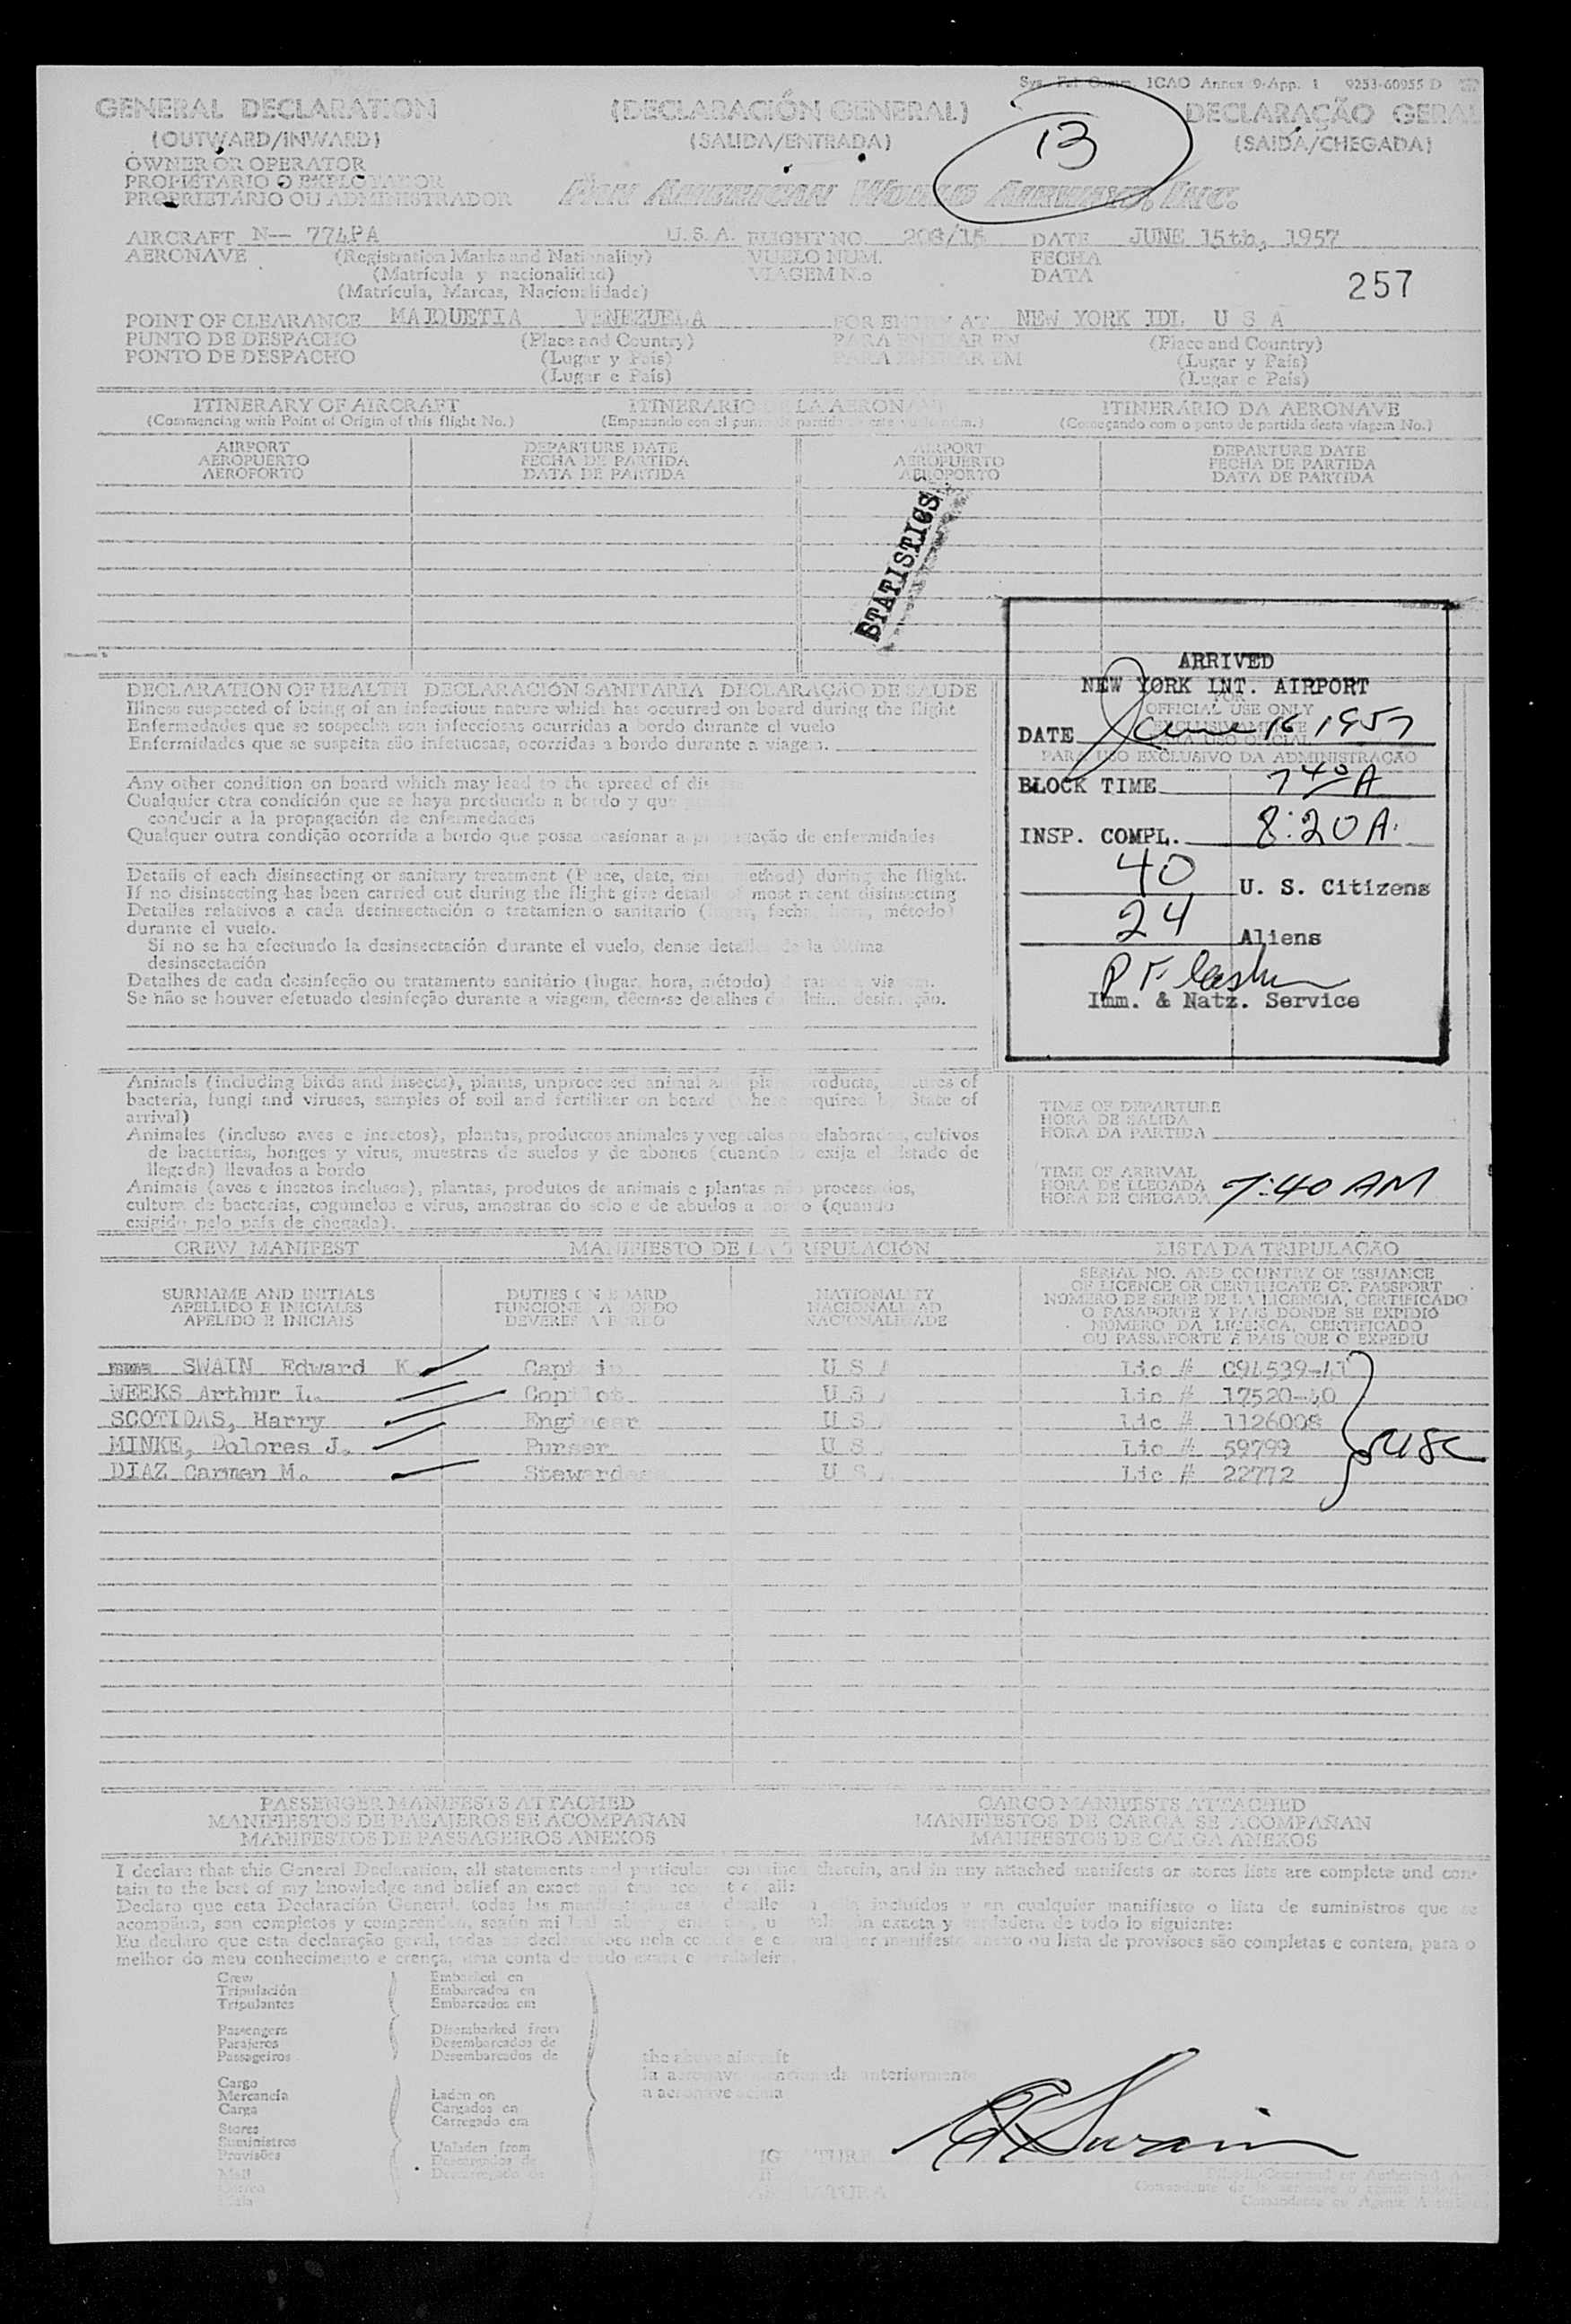 Sys. Fel Comm. ICAO Annex 9-App. 1 9253-60955 D
GENERAL DECLARATION (DECLARACIÓN GENERAL) DECLARAÇÃO GERAL
(OUTWARD/INWARD) (SALIDA/ENTRADA) (SAIDA/CHEGADA)
13
OWNER OR OPERATOR
PROPIETARIO O EXPLOTADOR
PROPRIETÁRIO OU ADMINISTRADOR
PAN AMERICAN WORLD AIRWAYS, INC.
AIRCRAFT N-- 774PA U.S.A. FLIGHT NO. 203/15 DATE JUNE 15th, 1957
AERONAVE (Registration Marks and Nationality) VUELO NUM. FECHA
(Matrícula y nacionalidad) VIAGEM N.o DATA
(Matrícula, Marcas, Nacionalidade) 257
POINT OF CLEARANCE MAIQUETIA VENEZUELA FOR ENTRY AT NEW YORK IDL U S A
PUNTO DE DESPACHO (Place and Country) PARA ENTRAR EN (Place and Country)
PONTO DE DESPACHO (Lugar y País) PARA ENTRAR EM (Lugar y País)
(Lugar e País) (Lugar e País)
ITINERARY OF AIRCRAFT ITINERARIO DE LA AERONAVE ITINERÁRIO DA AERONAVE
(Commencing with Point of Origin of this flight No.) (Empezando con el punto de partida de este vuelo núm.) (Começando com o ponto de partida desta viagem No.)
AIRPORT DEPARTURE DATE AIRPORT DEPARTURE DATE
AEROPUERTO FECHA DE PARTIDA AEROPUERTO FECHA DE PARTIDA
AEROPORTO DATA DE PARTIDA AEROPORTO DATA DE PARTIDA
STATISTICS
DECLARATION OF HEALTH DECLARACIÓN SANITARIA DECLARAÇÃO DE SAUDE
Illness suspected of being of an infectious nature which has occurred on board during the flight
Enfermedades que se sospecha son infecciosas ocurridas a bordo durante el vuelo
Enfermidades que se suspeita são infetuosas, ocorridas a bordo durante a viagem.
Any other condition on board which may lead to the spread of dis
Cualquier otra condición que se haya producido a bordo y que
conducir a la propagación de enfermedades
Qualquer outra condição ocorrida a bordo que possa ocasionar a propagação de enfermidades
Details of each disinsecting or sanitary treatment (Place, date, time, method) during the flight.
If no disinsecting has been carried out during the flight give details of most recent disinsecting
Detalles relativos a cada desinsectación o tratamiento sanitario (lugar, fecha, hora, método)
durante el vuelo.
Si no se ha efectuado la desinsectación durante el vuelo, dense detalles de la última
desinsectación
Detalhes de cada desinfeção ou tratamento sanitário (lugar, hora, método) durante a viagem.
Se não se houver efetuado desinfeção durante a viagem, dêem-se detalhes da última desinfeção.
ARRIVED
NEW YORK INT. AIRPORT
FOR
OFFICIAL USE ONLY
EXCLUSIVAMENTE
PARA USO OFICIAL
DATE June 16 1957
PARA USO EXCLUSIVO DA ADMINISTRAÇÃO
BLOCK TIME 7 40 A
INSP. COMPL. 8:20 A.
40 U. S. Citizens
24 Aliens
Imm. & Natz. Service
Animals (including birds and insects), plants, unprocessed animal and plant products, cultures of
bacteria, fungi and viruses, samples of soil and fertilizer on board (where required by State of
arrival)
Animales (incluso aves e insectos), plantas, productos animales y vegetales no elaborados, cultivos
de bacterias, hongos y virus, muestras de suelos y de abonos (cuando lo exija el Estado de
llegada) llevados a bordo
Animais (aves e insetos inclusos), plantas, produtos de animais e plantas não processados,
cultura de bacterias, cogumelos e virus, amostras do solo e de abudos a bordo (quando
exigido pelo país de chegada).
TIME OF DEPARTURE
HORA DE SALIDA
HORA DA PARTIDA
TIME OF ARRIVAL
HORA DE LLEGADA
HORA DE CHEGADA 7:40 AM
CREW MANIFEST MANIFIESTO DE LA TRIPULACIÓN LISTA DA TRIPULAÇÃO
SURNAME AND INITIALS DUTIES ON BOARD NATIONALITY SERIAL NO. AND COUNTRY OF ISSUANCE
APELLIDO E INICIALES FUNCIONES A BORDO NACIONALIDAD OF LICENCE OR CERTIFICATE OR PASSPORT
APELIDO E INICIAIS DEVERES A BORDO NACIONALIDADE NÚMERO DE SERIE DE LA LICENCIA, CERTIFICADO
O PASAPORTE Y PAIS DONDE SE EXPIDIÓ
NÚMERO DA LICENÇA, CERTIFICADO
OU PASSAPORTE E PAIS QUE O EXPEDIU
SWAIN Edward K. Captain U S A Lic # 094539-41
WEEKS Arthur L. Copilot U S A Lic # 17520-40
SCOTIDAS, Harry Engineer U S A Lic # 1126008
MINKE, Dolores J. Purser U S A Lic # 59799
DIAZ Carmen M. Stewardess U S A Lic # 22772
USC
PASSENGER MANIFESTS ATTACHED CARGO MANIFESTS ATTACHED
MANIFIESTOS DE PASAJEROS SE ACOMPAÑAN MANIFIESTOS DE CARGA SE ACOMPAÑAN
MANIFESTOS DE PASSAGEIROS ANEXOS MANIFESTOS DE CARGA ANEXOS
I declare that this General Declaration, all statements and particulars contained therein, and in any attached manifests or stores lists are complete and con-
tain to the best of my knowledge and belief an exact and true account of all:
Declaro que esta Declaración General, todas las manifestaciones y detalles en ella incluidos y en cualquier manifiesto o lista de suministros que se
acompaña, son completos y comprenden, según mi leal saber y entender, una relación exacta y verdadera de todo lo siguiente:
Eu declaro que esta declaração geral, todas as declarações nela contida e em qualquer manifesto anexo ou lista de provisões são completas e contem, para o
melhor do meu conhecimento e crença, uma conta de tudo exata e verdadeira.
Crew Embarked on
Tripulación Embarcados en
Tripulantes Embarcados em
Passengers Disembarked from
Pasajeros Desembarcados de
Passageiros Desembarcados de the above aircraft
la aeronave mencionada anteriormente
Cargo a aeronave acima
Mercancía Laden on
Carga Cargados en
Stores Carregado em
Suministros
Provisões Unladen from
Mail Descargados de
Correo Descarregado de
Mala
SIGNATURE
FIRMA
ASSINATURA
E K Swain